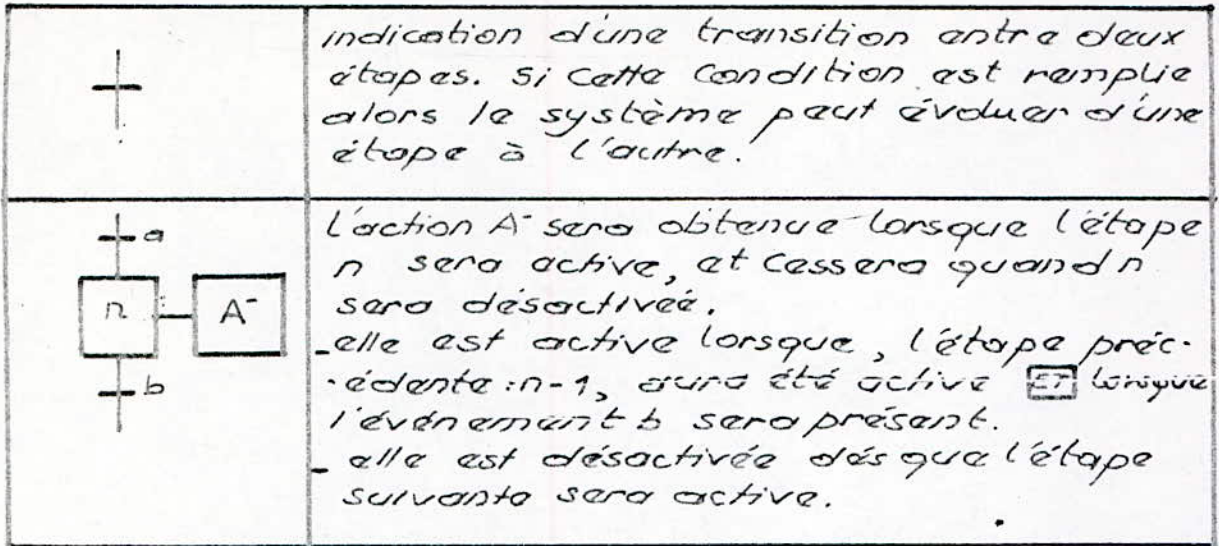 indication d'une transition entre deux
étapes. Si cette condition est remplie
alors le système peut évoluer d'une
étape à l'autre.
a
n
A⁻
b
L'action A⁻ sera obtenue lorsque l'étape
n sera active, et cessera quand n
sera désactivée.
- elle est active lorsque, l'étape préc-
-édente : n-1, aura été active ET lorsque
l'événement b sera présent.
- elle est désactivée dés que l'étape
suivante sera active.